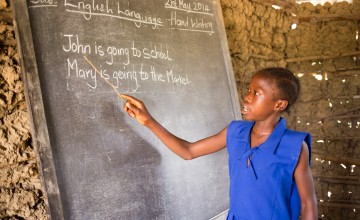 Sub: English Language - Hand Writing 2nd May 2014
John is going to school
Mary is going to the Market